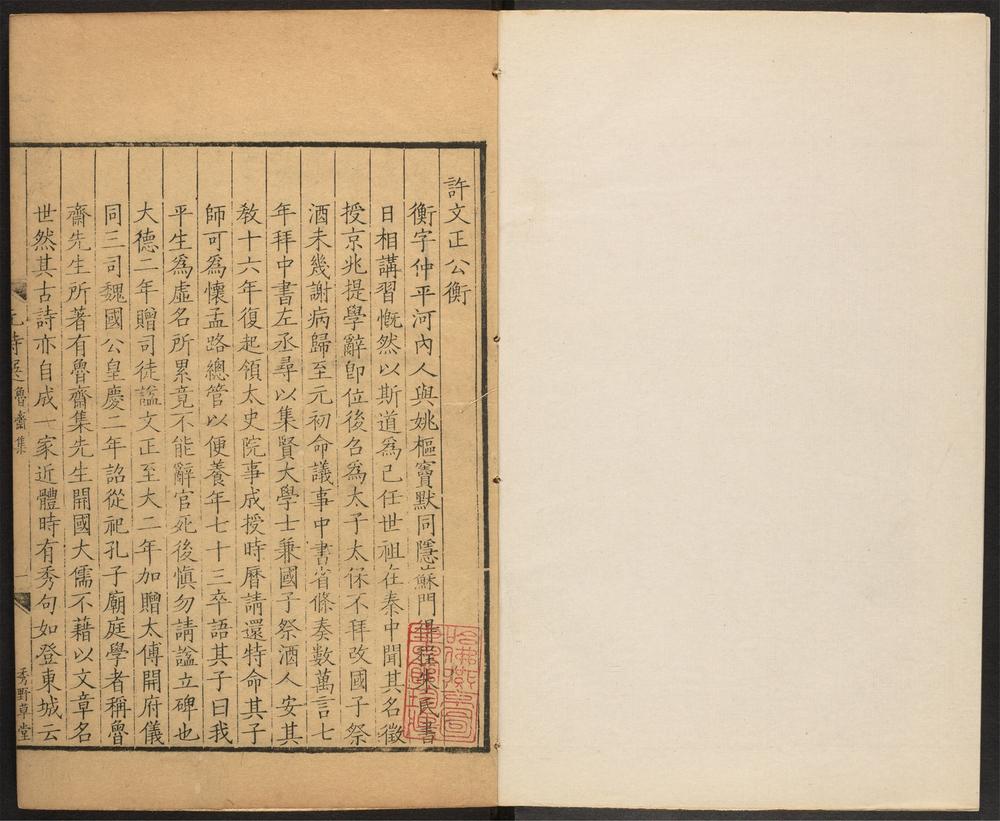 許文正公衡
衡字仲平河內人與姚樞竇默同隱蘇門得程朱氏書
日相講習慨然以斯道為己任世祖在秦中聞其名徵
授京兆提學辭卽位後召為太子太保不拜改國子祭
酒未幾謝病歸至元初命議事中書省條奏數萬言七
年拜中書左丞尋以集賢大學士兼國子祭酒人安其
敎十六年復起領太史院事成授時曆請還特命其子
師可為懷孟路總管以便養年七十三卒語其子曰我
平生為虛名所累竟不能辭官死後慎勿請諡立碑也
大德二年贈司徒諡文正至大二年加贈太傅開府儀
同三司魏國公皇慶二年詔從祀孔子廟庭學者稱魯
齋先生所著有魯齋集先生開國大儒不藉以文章名
世然其古詩亦自成一家近體時有秀句如登東城云
元詩選 魯齋集 一 秀野草堂